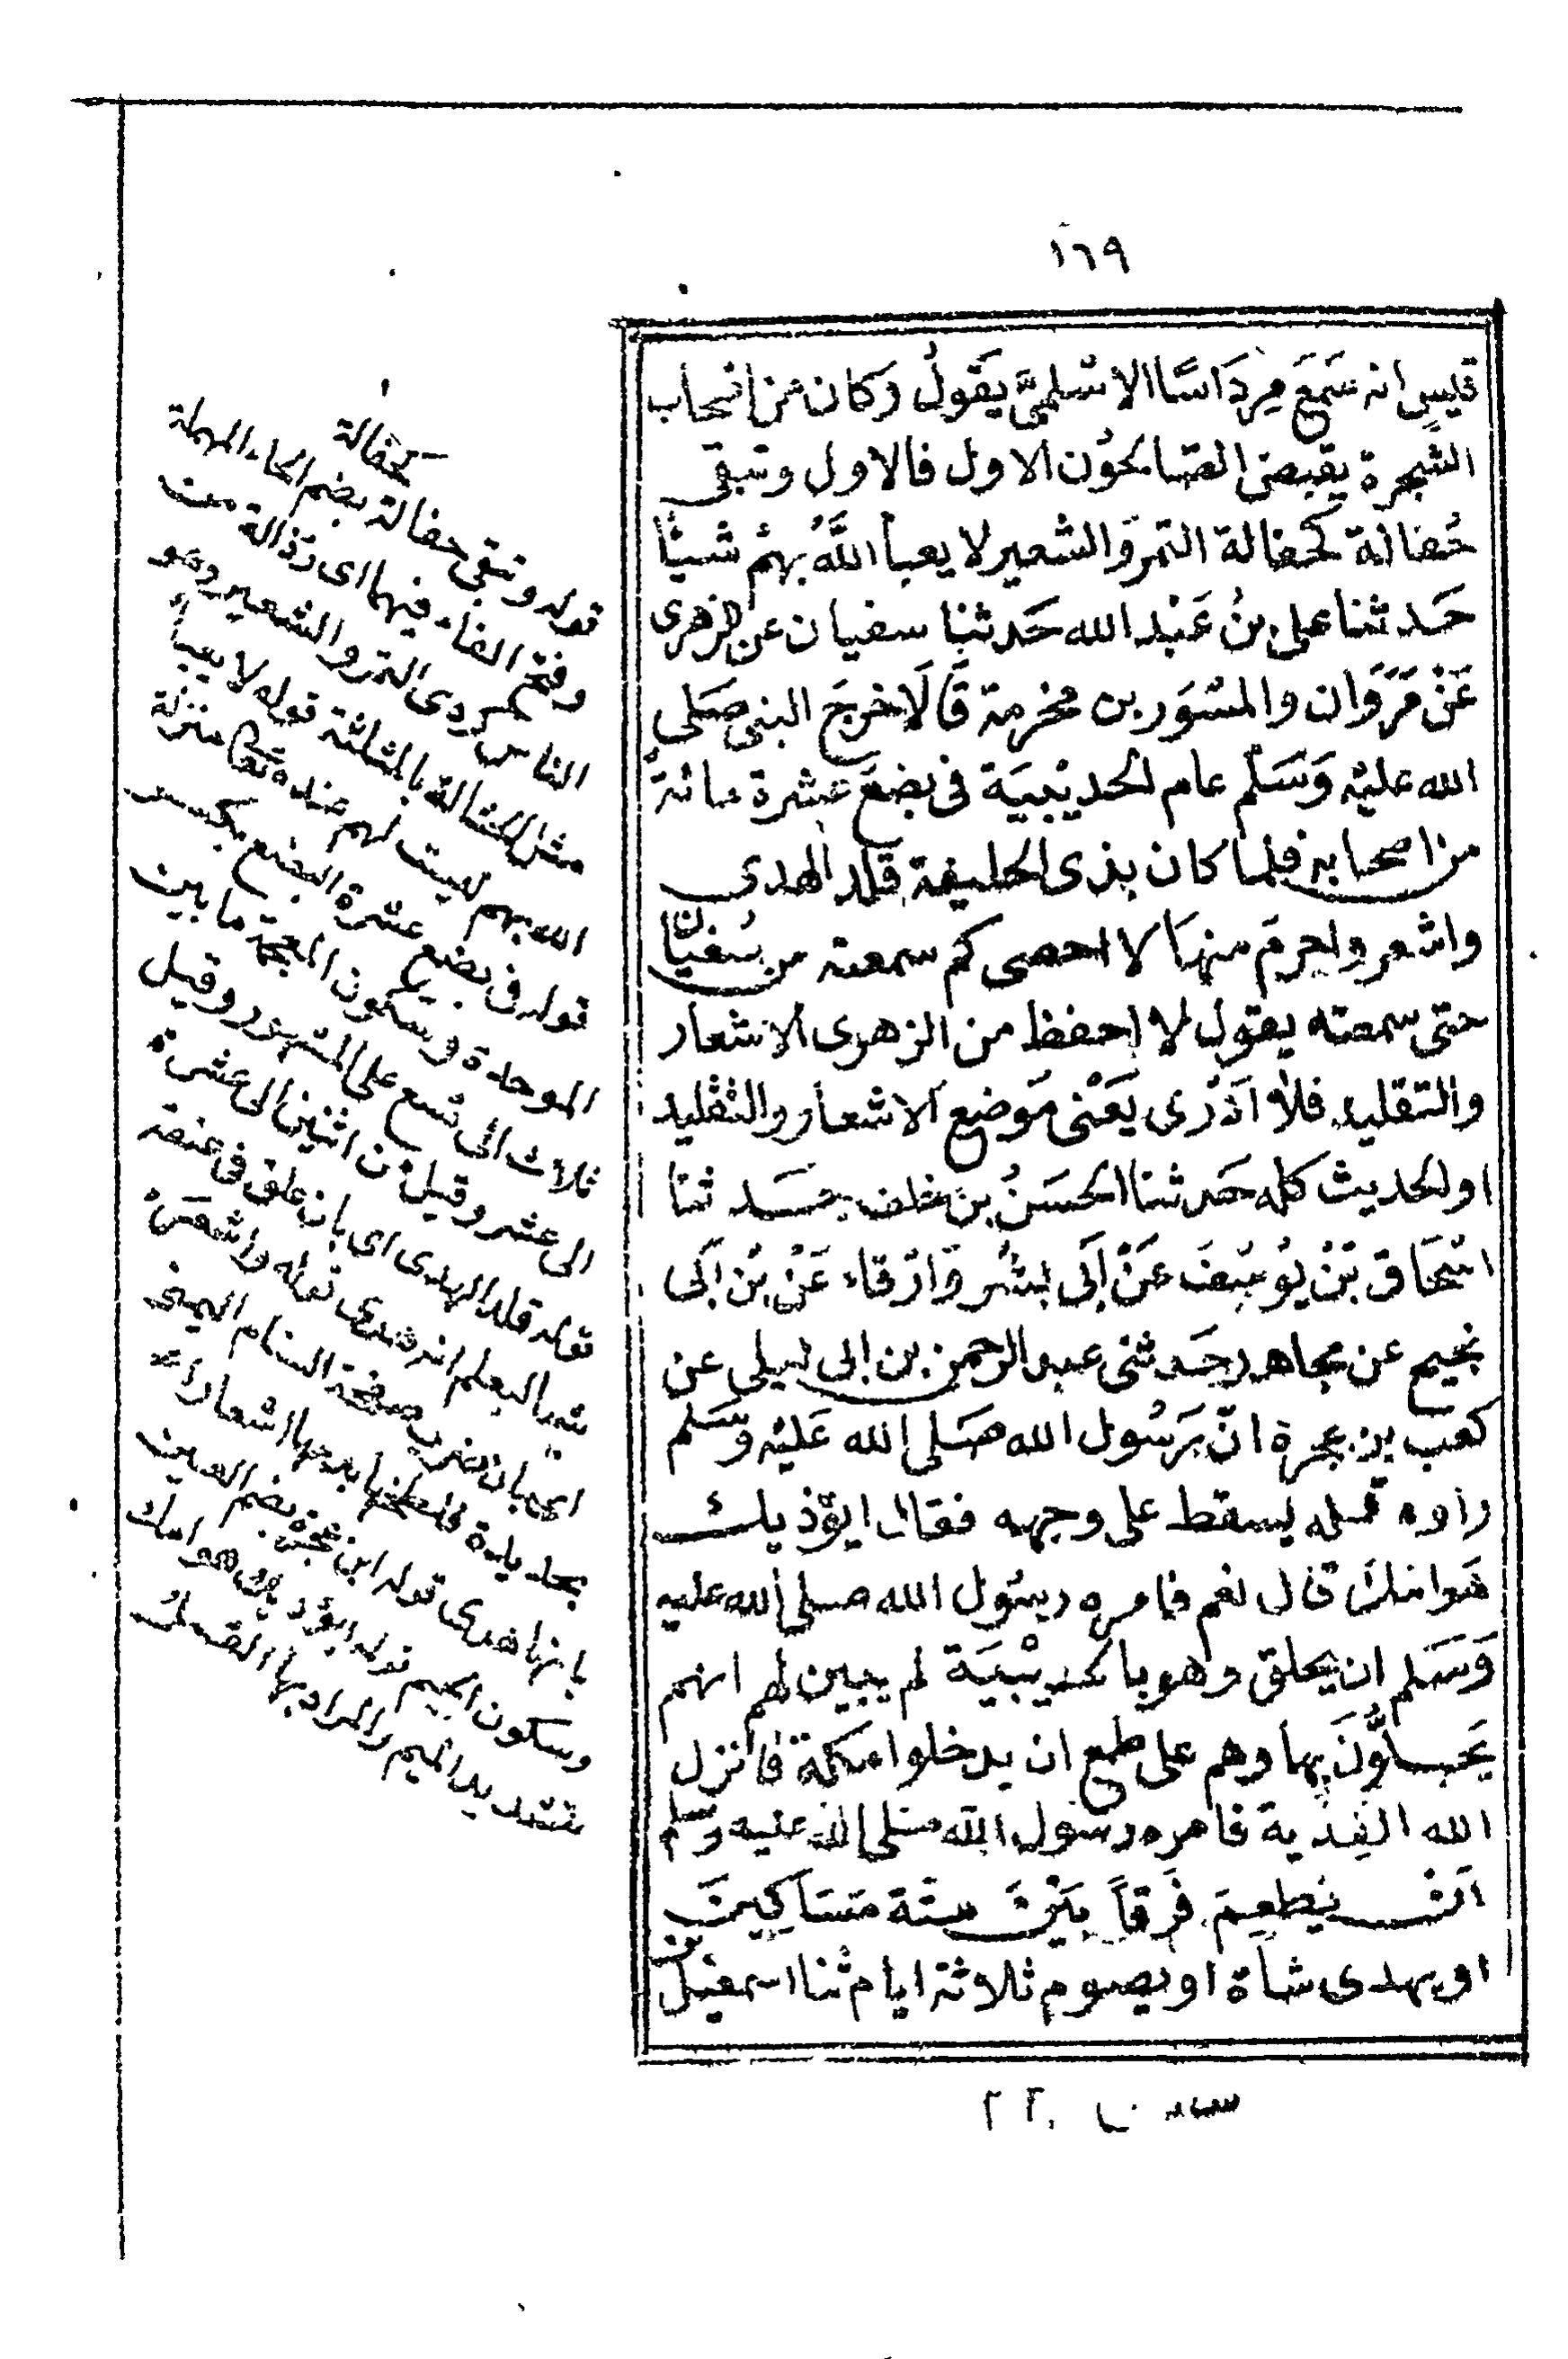 ١٦٩
قيس انه سَمَعَ مِردَاسًا الاسْلمىَّ يَقولُ وَكان من اصحاب
الشجرة يقبض الصالحوُن الاول فالاول وتبقى
حُفالة كحفالة التمر وَالشعير لا يعبأ اللَّهُ بهمْ شيئا
حَدثنا على بنُ عَبْد الله حَدثنا سفيان عن الزهرى
عَنْ مَرْوَان والمسْوَر بن مخرمة قَالَا خرجَ النبى صَلى
الله عليْه وَسَلم عام الحديْبيَة فى بضعَ عشرة مائةً
من اصحابه فلما كان بذى الحليفة قلد الهدى
واشعر واحرمَ منها لا احصى كم سمعته من سُفيَان
حتى سمعته يقول لا احفظ من الزهرى الاشعار
والتقليد فلا ادْرى يَعْنى مَوضع الاشعار والتقليد
او الحديث كله حَدثنا الحسَنُ بن خلف حَدثنا
اسْحَاق بْنُ يُوسُفَ عَنْ اَبى بشْر وَارْقاء عَنْ بْن اَبى
نجيح عن مجاهد حَدثنى عبد الرحمن بن ابى ليلى عن
كعب بن عجرة انّ رَسُول الله صَلى الله عَليْه وَسَلم
راوه قمله يسقط على وجهه فقال ايؤذيك
هَوامكَ قال نعم فامره رسُول الله صلى الله عليه
وَسَلم ان يحلق وهو بالحديْبيَة لم يبين لهم انهم
يَحِلوُّنَ بها وهم على طمع ان يدخلوا مكة فانزل
الله الفِدْية فامره رسول الله صلى الله عليه وسلم
اَن يُطعِمَ فَرقاً بَيْنَ ستة مَسَاكِينَ
او يهدى شاة او يصوم ثلاثة ايام ثنا اسمعيل بن
كحفالة
قوله وتبقى حفالة بضم الحاء المهملة
وفتح الفاء فيهما اى رذالة من
الناس كردى التمر والشعير وهو
مثل الحثالة بالمثلثة قوله لا يعبأ
الله بهم ليست لهم عنده تعالى منزلة
قوله فى بضع عشرة البضع بكسر
الموحدة وسكون المعجمة ما بين
ثلاث الى تسع على المشهور وقيل
الى عشر وقيل من اثنين الى عشرة
قوله قلد الهدى اى بان علق فى عنقه
شيا ليعلم انه هدى قوله واشعر
اى بان ضرب صفحة السنام اليمنى
بحديدة فلطخها بدمها اشعارا
بانها هدى قوله ابن عجرة بضم العين
وسكون الجيم قوله ايؤذيك هوامك
بتشديد الميم والمراد بها القمل